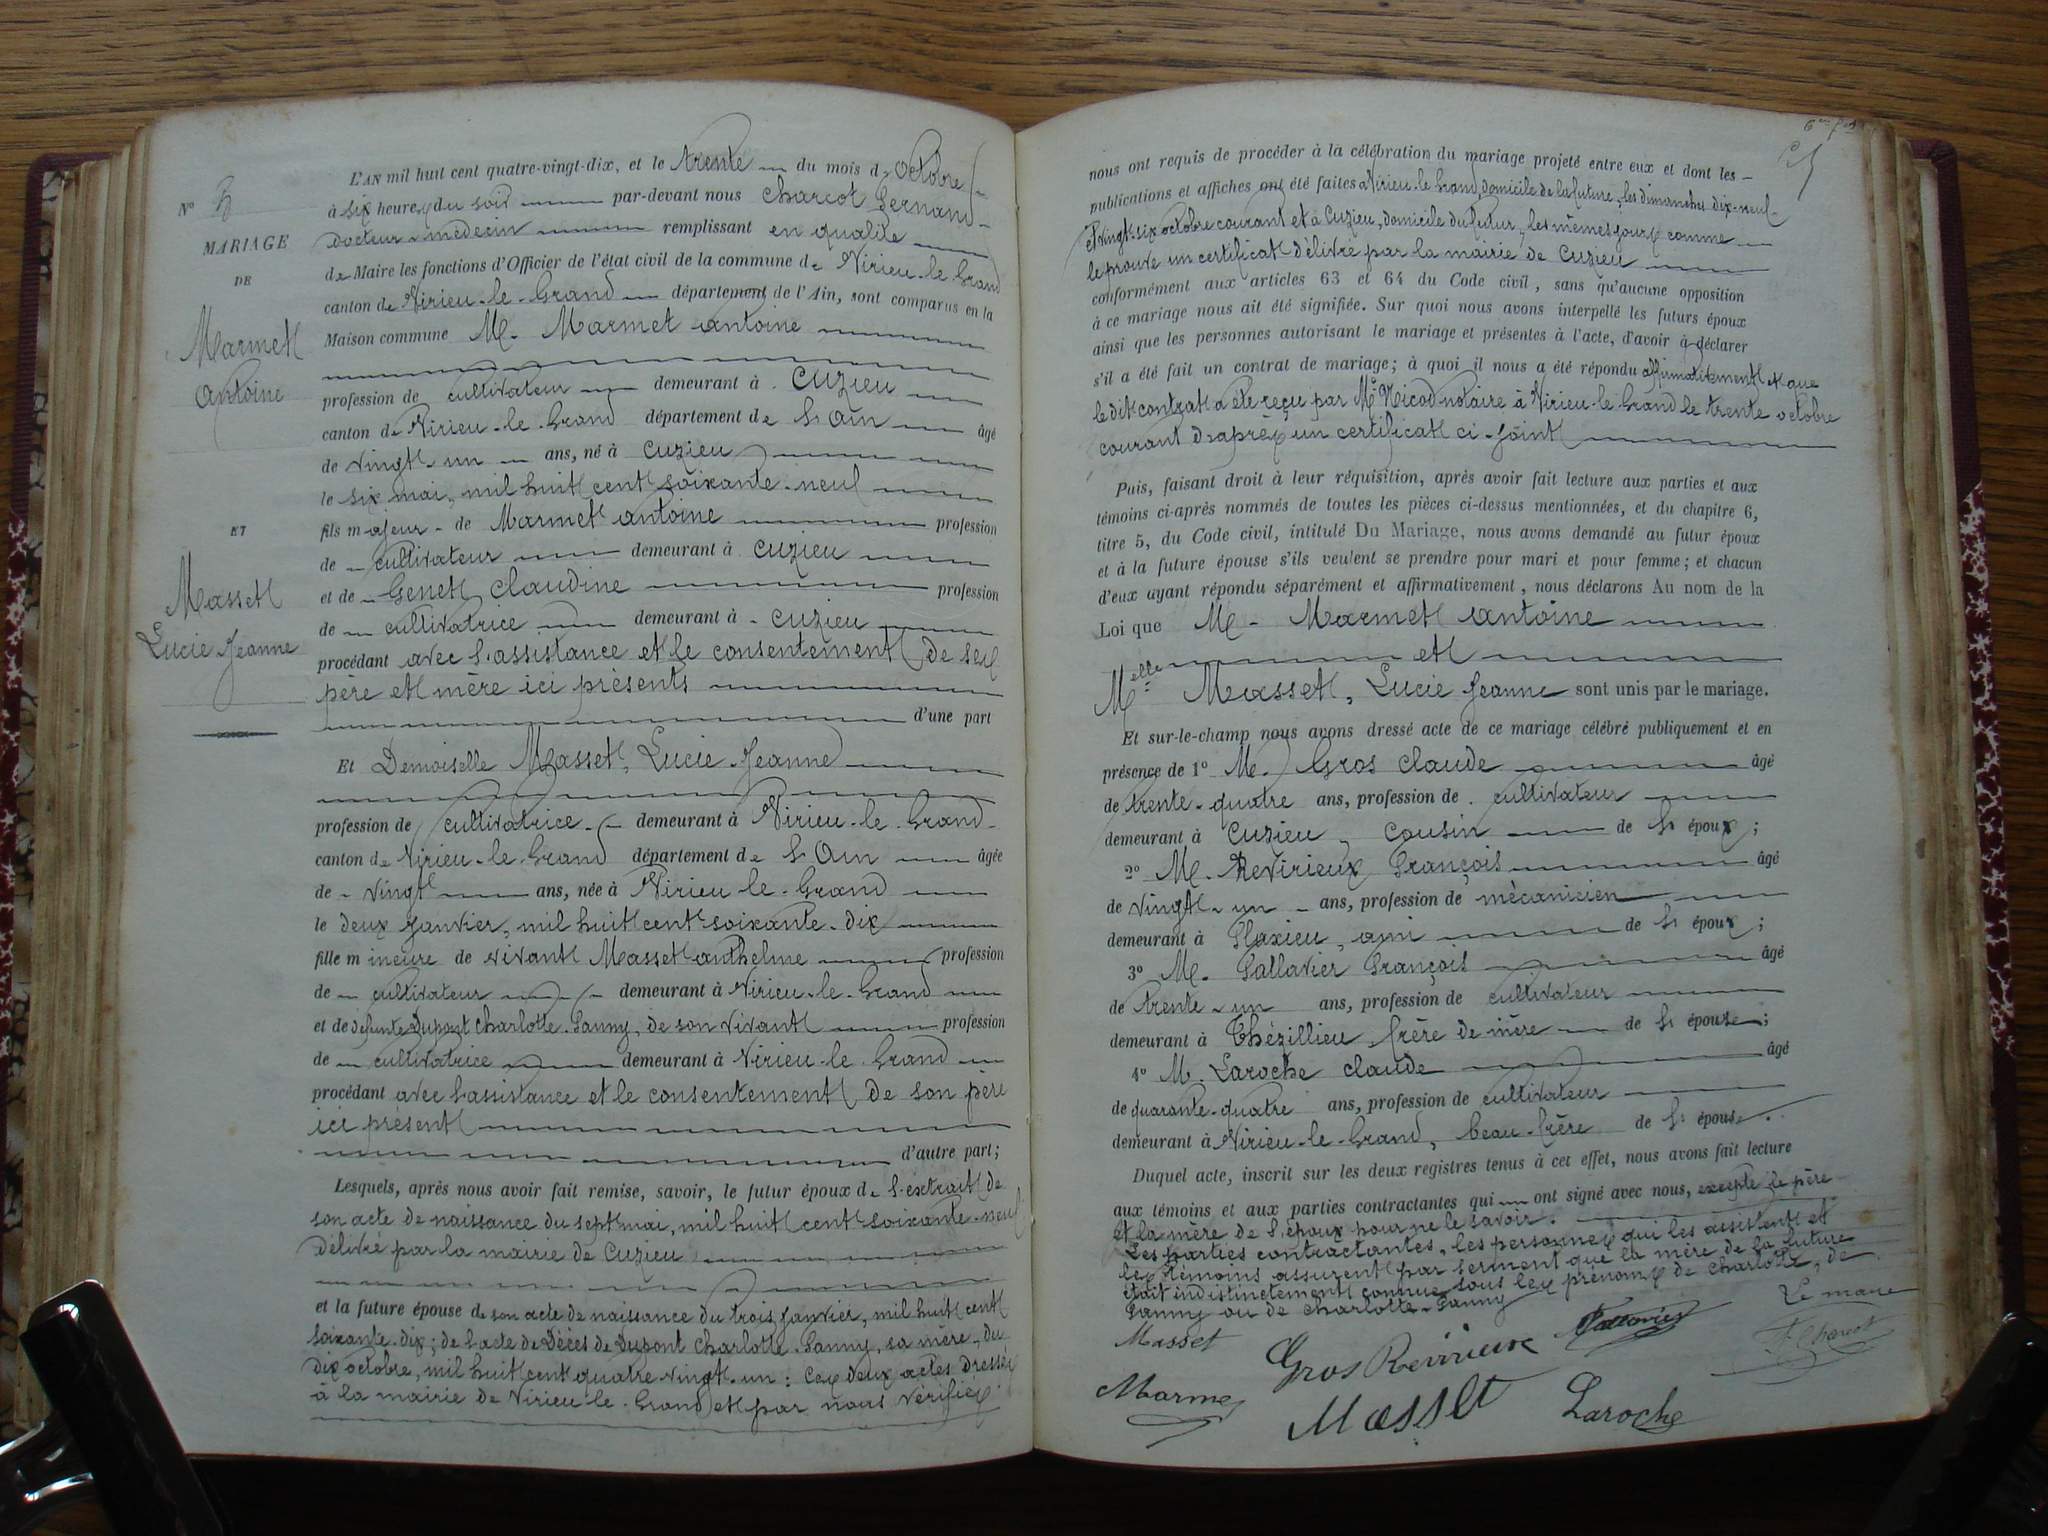 L'AN mil huit cent quatre-vingt-dix, et le trente du mois d octobre
à six heures du soir par-devant nous Charcot Fernand
Docteur-médecin remplissant en qualité
de Maire les fonctions d'Officier de l'état civil de la commune de Virieu-le-Grand
canton de Virieu-le-Grand département de l'Ain, sont comparus en la
Maison commune M. Marmet Antoine
profession de cultivateur demeurant à Cuzieu
canton de Virieu-le-Grand département de l'Ain âgé
de vingt-un ans, né à Cuzieu
le six mai, mil huit cent soixante-neuf
fils majeur de Marmet Antoine profession
de cultivateur demeurant à Cuzieu
et de Genet Claudine profession
de cultivatrice demeurant à Cuzieu
procédant avec l'assistance et le consentement de ses
père et mère ici présents
d'une part
N°
MARIAGE
DE
Marmet
Antoine
ET
Masset
Lucie Jeanne
Et Demoiselle Masset, Lucie Jeanne
profession de cultivatrice demeurant à Virieu-le-Grand
canton de Virieu-le-Grand département de l'Ain âgée
de vingt ans, née à Virieu-le-Grand
le deux janvier, mil huit cent soixante-dix
fille mineure de vivant Masset Anthelme profession
de cultivateur demeurant à Virieu-le-Grand
et de défunte Dupont Charlotte-Fanny, de son vivant profession
de cultivatrice demeurant à Virieu-le-Grand
procédant avec l'assistance et le consentement de son père
ici présent
d'autre part;
Lesquels, après nous avoir fait remise, savoir, le futur époux de l'extrait de
son acte de naissance du sept mai, mil huit cent soixante-neuf
délivré par la mairie de Cuzieu
et la future épouse de son acte de naissance du trois janvier, mil huit cent
soixante-dix; de l'acte de décès de Dupont Charlotte-Fanny, sa mère, du
dix octobre, mil huit cent quatre vingt-un: Ces deux actes dressés
à la mairie de Virieu-le-Grand et par nous vérifiés
nous ont requis de procéder à la célébration du mariage projeté entre eux et dont les
publications et affiches ont été faites à Virieu-le-Grand, domicile de la future, les dimanches dix-neuf
et vingt-six octobre courant et à Cuzieu, domicile du futur, les mêmes jours comme
le prouve un certificat délivré par la mairie de Cuzieu
conformément aux articles 63 et 64 du Code civil, sans qu'aucune opposition
à ce mariage nous ait été signifiée. Sur quoi nous avons interpellé les futurs époux
ainsi que les personnes autorisant le mariage et présentes à l'acte, d'avoir à déclarer
s'il a été fait un contrat de mariage; à quoi il nous a été répondu affirmativement et que
le dit contrat a été reçu par Me Nicod notaire à Virieu-le-Grand le trente octobre
courant d'après un certificat ci-joint
Puis, faisant droit à leur réquisition, après avoir fait lecture aux parties et aux
témoins ci-après nommés de toutes les pièces ci-dessus mentionnées, et du chapitre 6,
titre 5, du Code civil, intitulé Du Mariage, nous avons demandé au futur époux
et à la future épouse s'ils veulent se prendre pour mari et pour femme; et chacun
d'eux ayant répondu séparément et affirmativement, nous déclarons Au nom de la
Loi que M. Marmet Antoine
et
Melle Masset, Lucie Jeanne sont unis par le mariage.
Et sur-le-champ nous avons dressé acte de ce mariage célébré publiquement et en
présence de 1° M. Gros Claude âgé
de trente-quatre ans, profession de cultivateur
demeurant à Cuzieu, cousin de l'époux;
2° M. Revirieux François âgé
de vingt-un ans, profession de mécanicien
demeurant à Flaxieu, ami de l'époux;
3° M. Tallavier François âgé
de trente-un ans, profession de cultivateur
demeurant à Thézillieu, frère de mère de l'épouse;
4° M. Laroche Claude âgé
de quarante-quatre ans, profession de cultivateur
demeurant à Virieu-le-Grand, beau-frère de l'épouse.
Duquel acte, inscrit sur les deux registres tenus à cet effet, nous avons fait lecture
aux témoins et aux parties contractantes qui ont signé avec nous, excepté le père
et la mère de l'époux pour ne le savoir.
Les parties contractantes, les personnes qui les assistent et
les témoins assurent par serment que la mère de la future
était indistinctement connue sous les prénoms de Charlotte, de
Fanny ou de Charlotte-Fanny
Le maire
Masset Gros Revirieux
F. Charcot
Marmet Masset Laroche